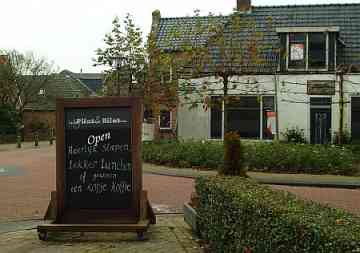 Open
Heerlijk slapen,
Lekker Lunchen
of gewoon
een kopje koffie